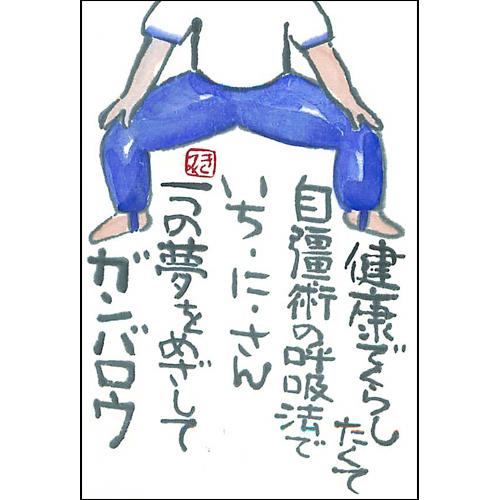 健康でくらし
たくて
自彊術の呼吸法で
いち・に・さん
一つの夢をめざして
ガンバロウ